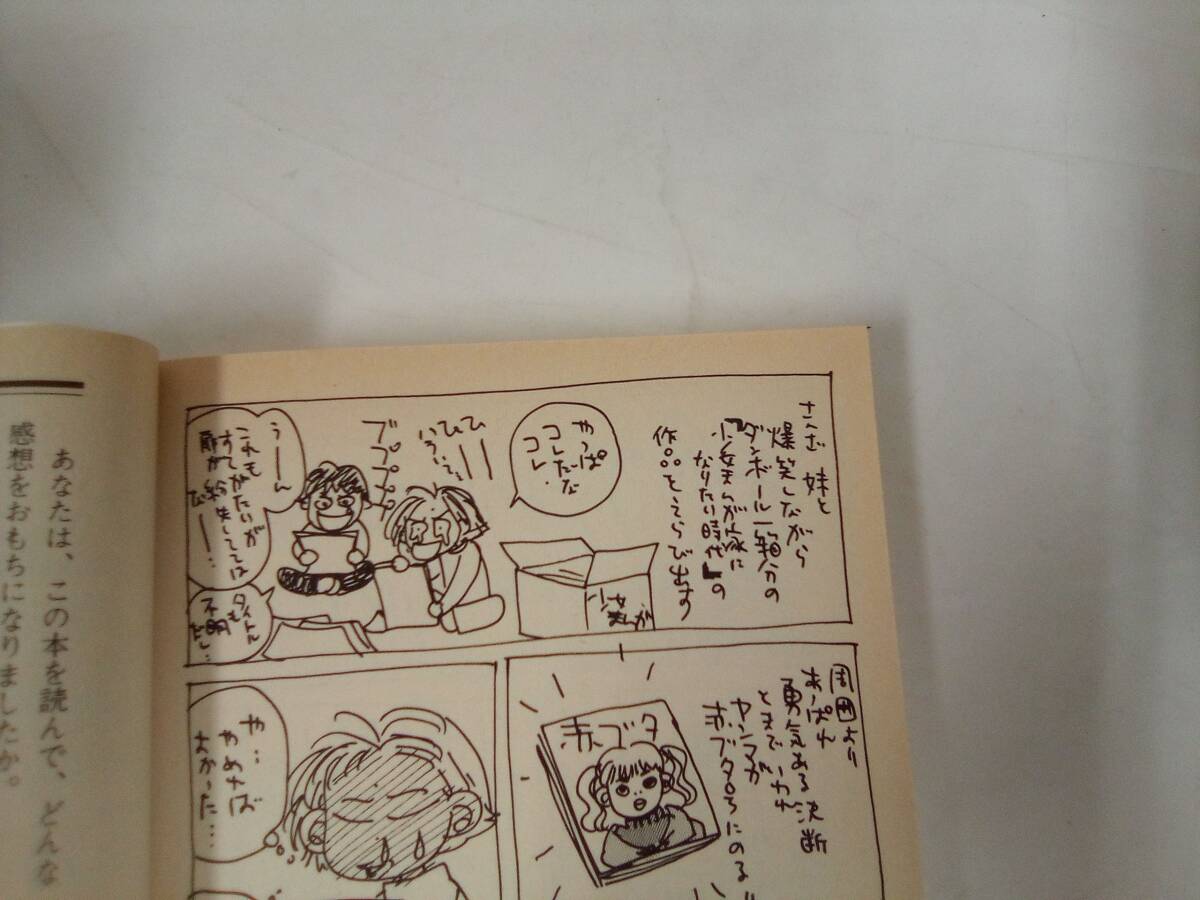 さんざ 妹と
爆笑しながら
ダンボール一箱分の
『少女まんが家に
なりたい時代』の
作品をえらび出す
やっぱ
コレだな
コレ
ひーー
ひーー
ププププ
うーーん
これも
すてがたいが
少女まんが
タイトルも
不明
だし…
周囲より
あっぱれ
勇気ある決断
とまでいわれ
ヤンマガ
赤ブタ
や…
やめれば
よかった…
あなたは、この本を読んで、どんな
感想をおもちになりましたか。